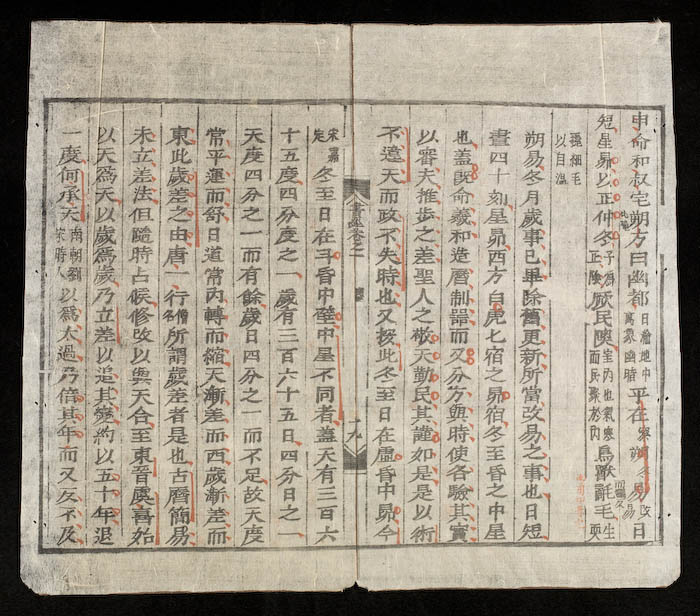 申命和叔宅朔方曰幽都日淪地中萬象幽暗平在察朔易改易日
短星昴以正仲冬厥民隩室內也氣寒而民聚於內鳥獸氄毛生耎
毳細毛以自溫
朔易冬月歲事已畢除舊更新所當改易之事也日短
晝四十刻星昴西方白虎七宿之昴宿冬至昏之中星
也蓋既命羲和造曆制器而又分方與時使各驗其實
以審夫推步之差聖人之敬天勤民其謹如是是以術
不違天而政不失時也又按此冬至日在虛昏中昴今
書經卷之一 十九
宋嘉定冬至日在斗昏中壁中星不同者蓋天有三百六
十五度四分度之一歲有三百六十五日四分日之一
天度四分之一而有餘歲日四分之一而不足故天度
常平運而舒日道常內轉而縮天漸差而西歲漸差而
東此歲差之由唐一行僧名所謂歲差者是也古曆簡易
未立差法但隨時占候修改以與天合至東晉虞喜始
以天爲天以歲爲歲乃立差以追其變約以五十年退
一度何承天南朝劉宋時人以爲太過乃倍其年而又反不及